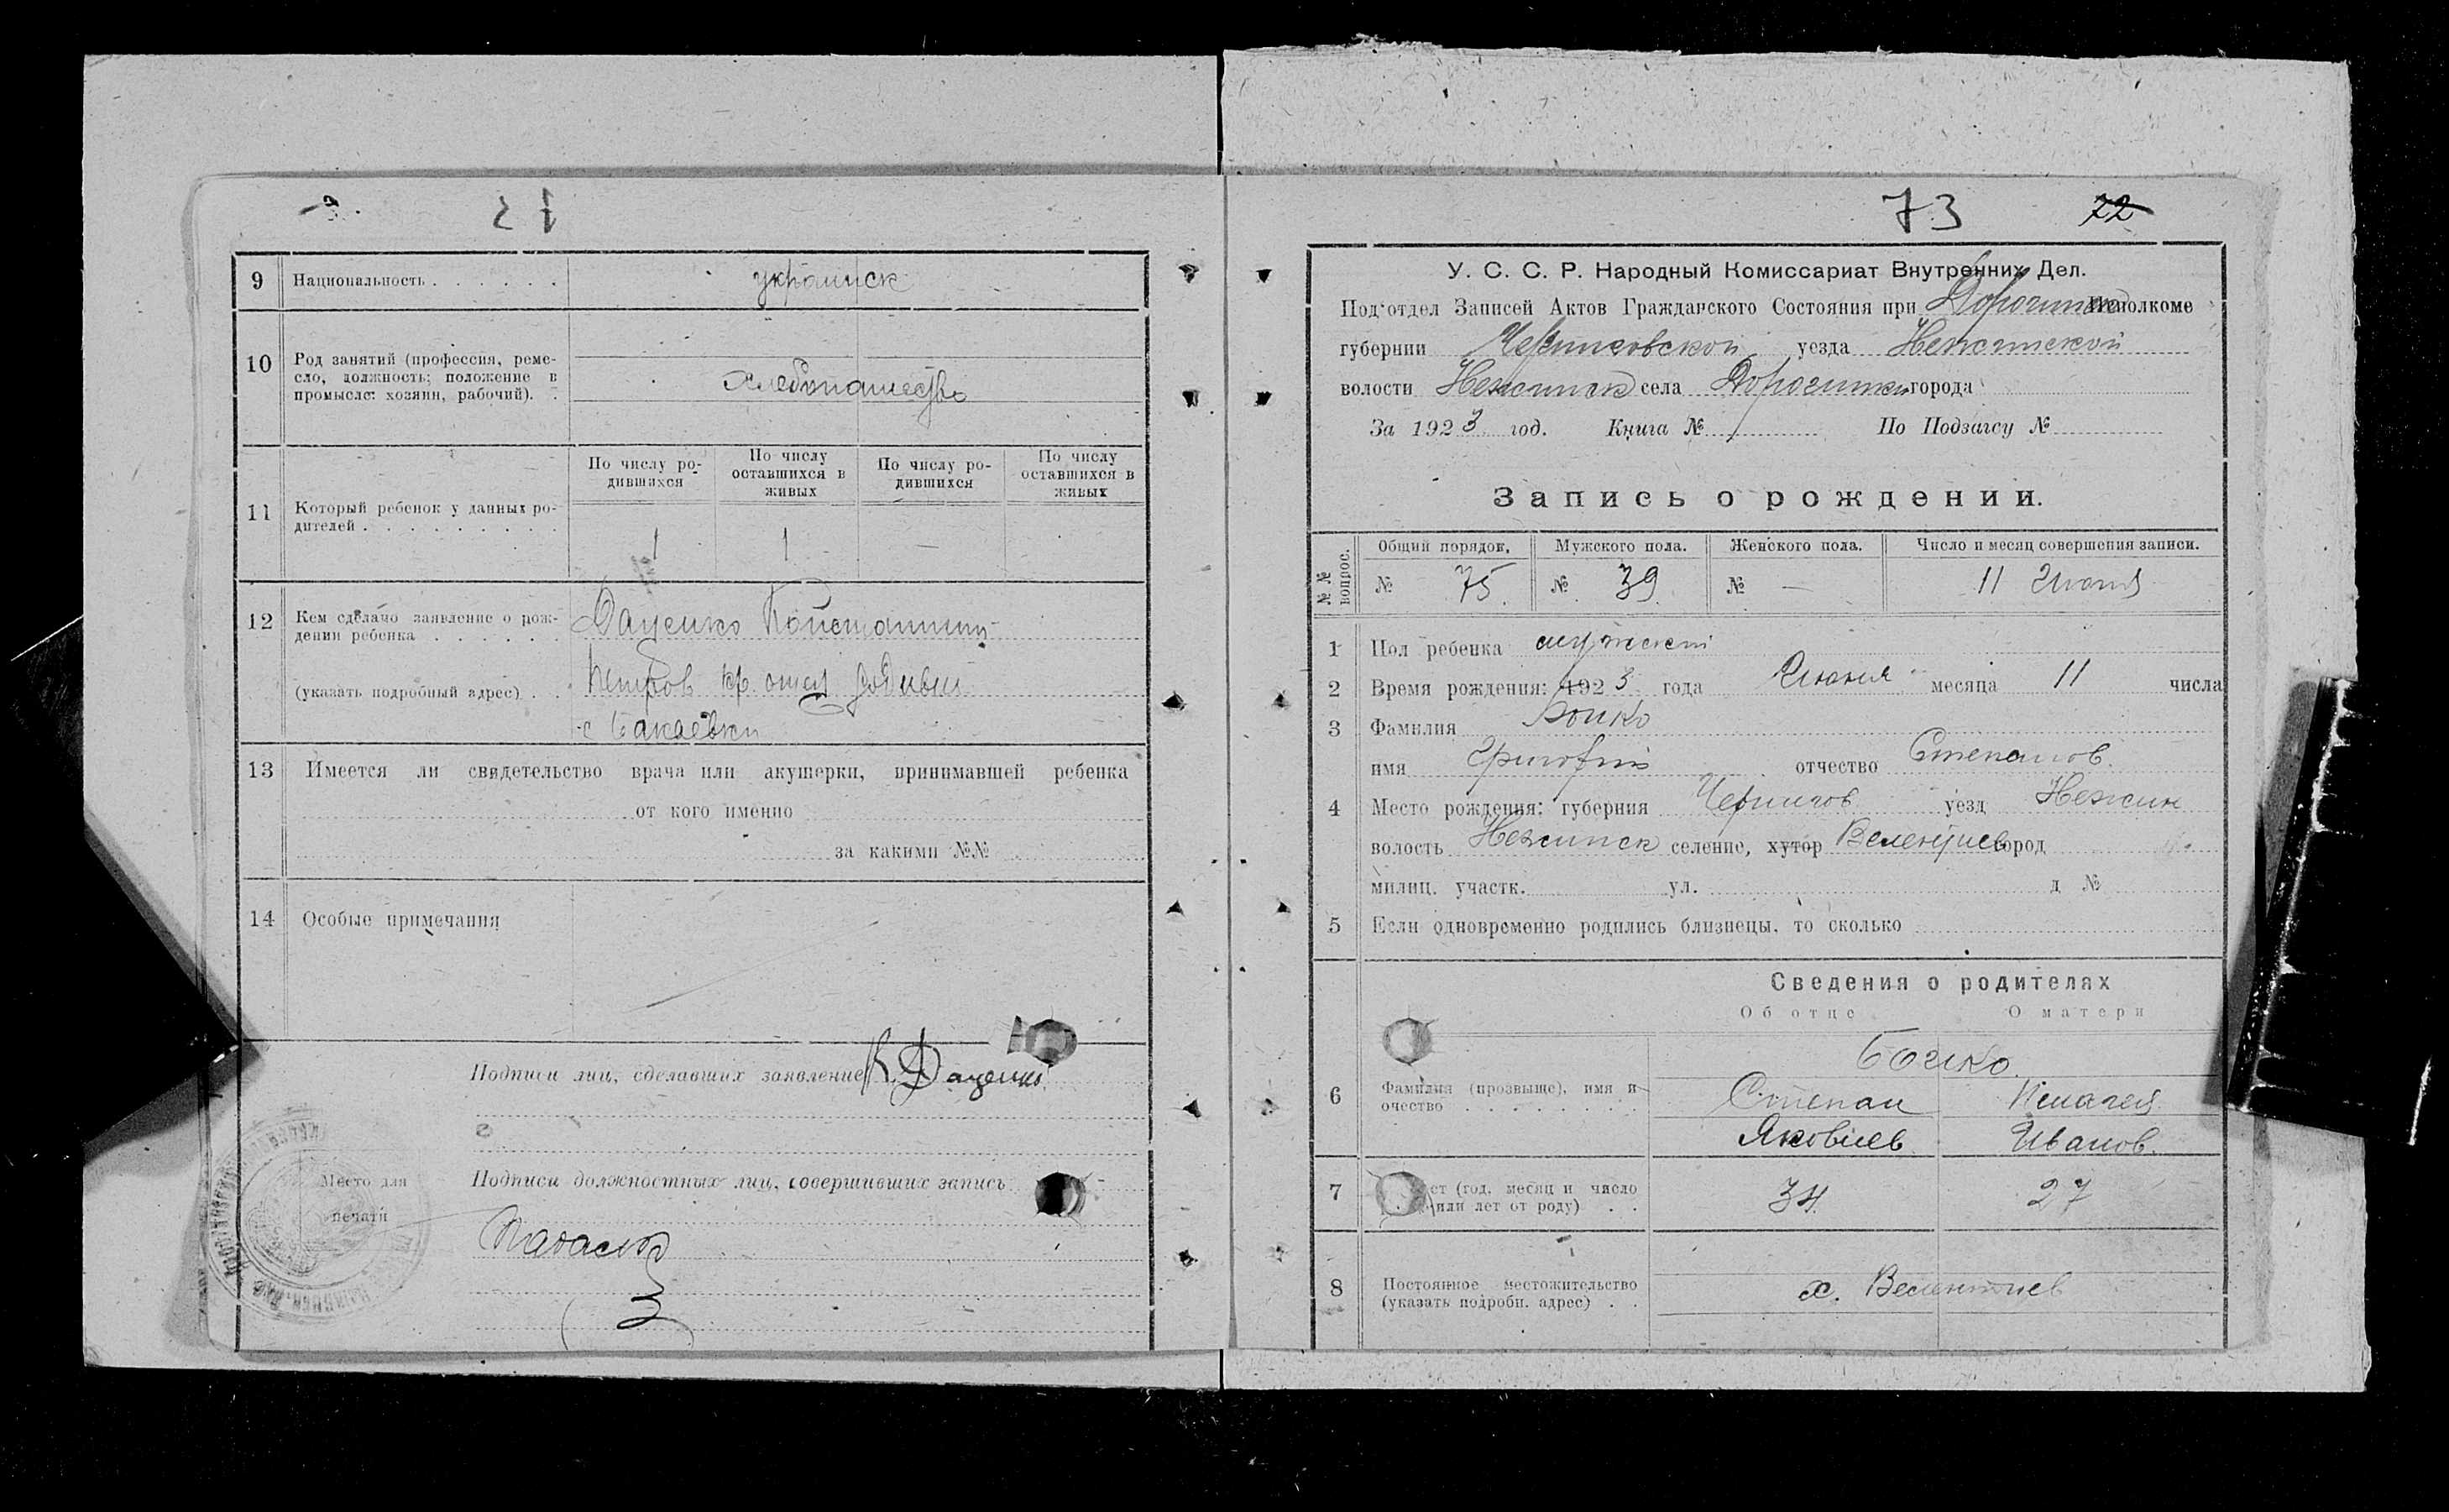 9 Национальность . . . . . . украинск
10 Род занятий (профессия, реме-
сло, должность; положение в
промысле: хозяин, рабочий). .
Хлебопашество
По числу ро-
дившихся
По числу
оставшихся в
живых
По числу ро-
дившихся
По числу
оставшихся в
живых
11 Который ребенок у данных ро-
дителей . . . . . . . . .
1 1 —
12 Кем сделано заявление о рож-
дении ребенка . . . . . .
Даценко Константин
(указать подробный адрес) . .
Петров кр.
с Бакаевки
13 Имеется ли свидетельство врача или акушерки, принимавшей ребенка
от кого именно
за какими №№
14 Особые примечания
Подписи лиц, сделавших заявление К Даценко
Место для
печати
Подписи должностных лиц, совершивших запись
73 72
У. С. С. Р. Народный Комиссариат Внутренних Дел.
Под'отдел Записей Актов Гражданского Состояния при Исполкоме
губернии Черниговской уезда Нежинской
волости Нежинск села города
За 1923 год. Книга № По Подзагсу №
Запись о рождении.
№№ вопрос.
Общий порядок. Мужского пола. Женского пола. Число и месяц совершения записи.
№ 75 № 39 № — 11
1 Пол ребенка мужской
2 Время рождения: 1923 года Июня месяца 11 числа
3 Фамилия Бойко
имя Григорий отчество Степанов.
4 Место рождения: губерния Чернигов уезд Нежин
волость Нежинск селение, хутор город
милиц. участк. ул. д №
5 Если одновременно родились близнецы, то сколько
Сведения о родителях
Об отце О матери
6 Фамилия (прозвыще), имя и
очество . . . . . . . .
Бойко
Степан Пелагея
Яковлев Иванов.
7 (год, месяц и число
или лет от роду) . .
34 27
8 Постоянное местожительство
(указать подробн. адрес) . .
х.